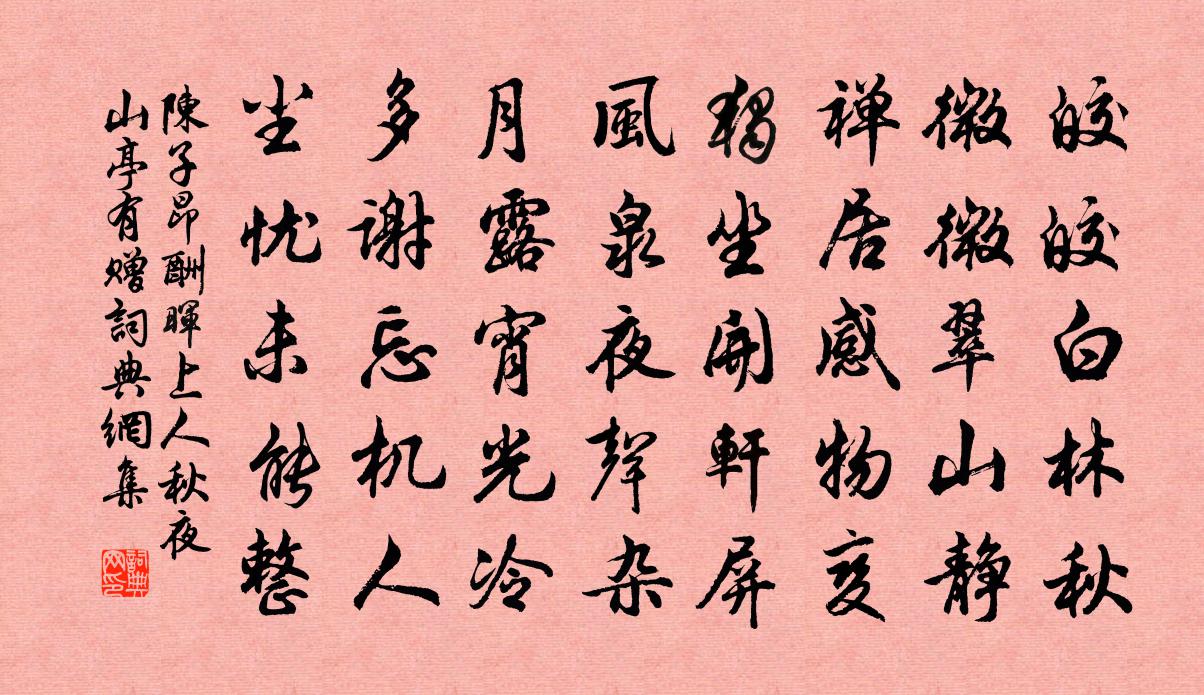 皎皎白林秋
微微翠山静
禅居感物变
獨坐開軒屏
風泉夜聲杂
月露宵光冷
多謝忘机人
尘忧未能整
陳子昂酬暉上人秋夜
山亭有贈詞典網集
詞典网印